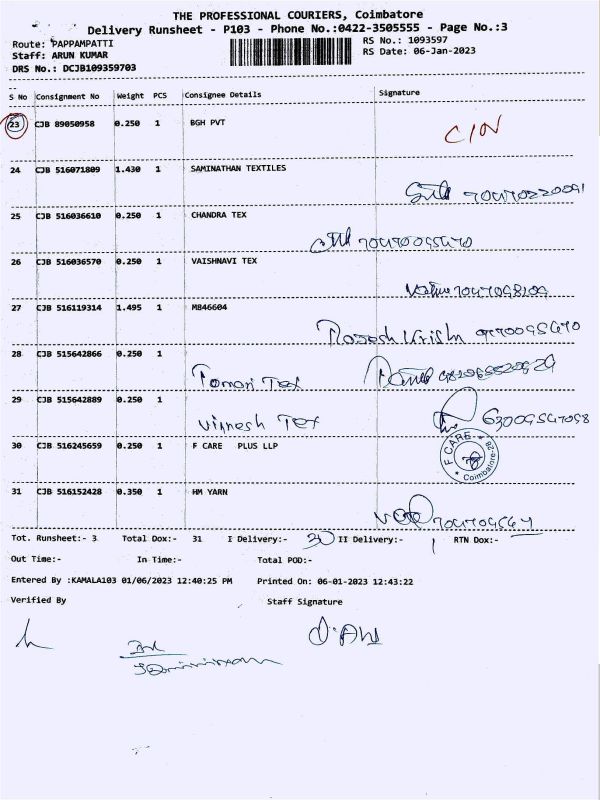 THE PROFESSIONAL COURIERS, Coimbatore
Delivery Runsheet - P103 - Phone No.:0422-3505555 - Page No.:3
Route: PAPPAMPATTI
RS No.: 1093597
Staff: ARUN KUMAR
RS Date: 06-Jan-2023
DRS No.: DCJB109359703
S No Consignment No Weight PCS Consignee Details Signature
23 CJB 89050958 0.250 1 BGH PVT
24 CJB 516071809 1.430 1 SAMINATHAN TEXTILES
25 CJB 516036610 0.250 1 CHANDRA TEX
26 CJB 516036570 0.250 1 VAISHNAVI TEX
27 CJB 516119314 1.495 1 MB46604
28 CJB 515642866 0.250 1
Tex
29 CJB 515642889 0.250 1
Vignesh Tex
30 CJB 516245659 0.250 1 F CARE PLUS LLP
F CARE
Coimbatore-28
31 CJB 516152428 0.350 1 HM YARN
Tot. Runsheet:- 3 Total Dox:- 31 I Delivery:- 30 II Delivery:- 1 RTN Dox:-
Out Time:- In Time:- Total POD:-
Entered By :KAMALA103 01/06/2023 12:40:25 PM Printed On: 06-01-2023 12:43:22
Verified By Staff Signature